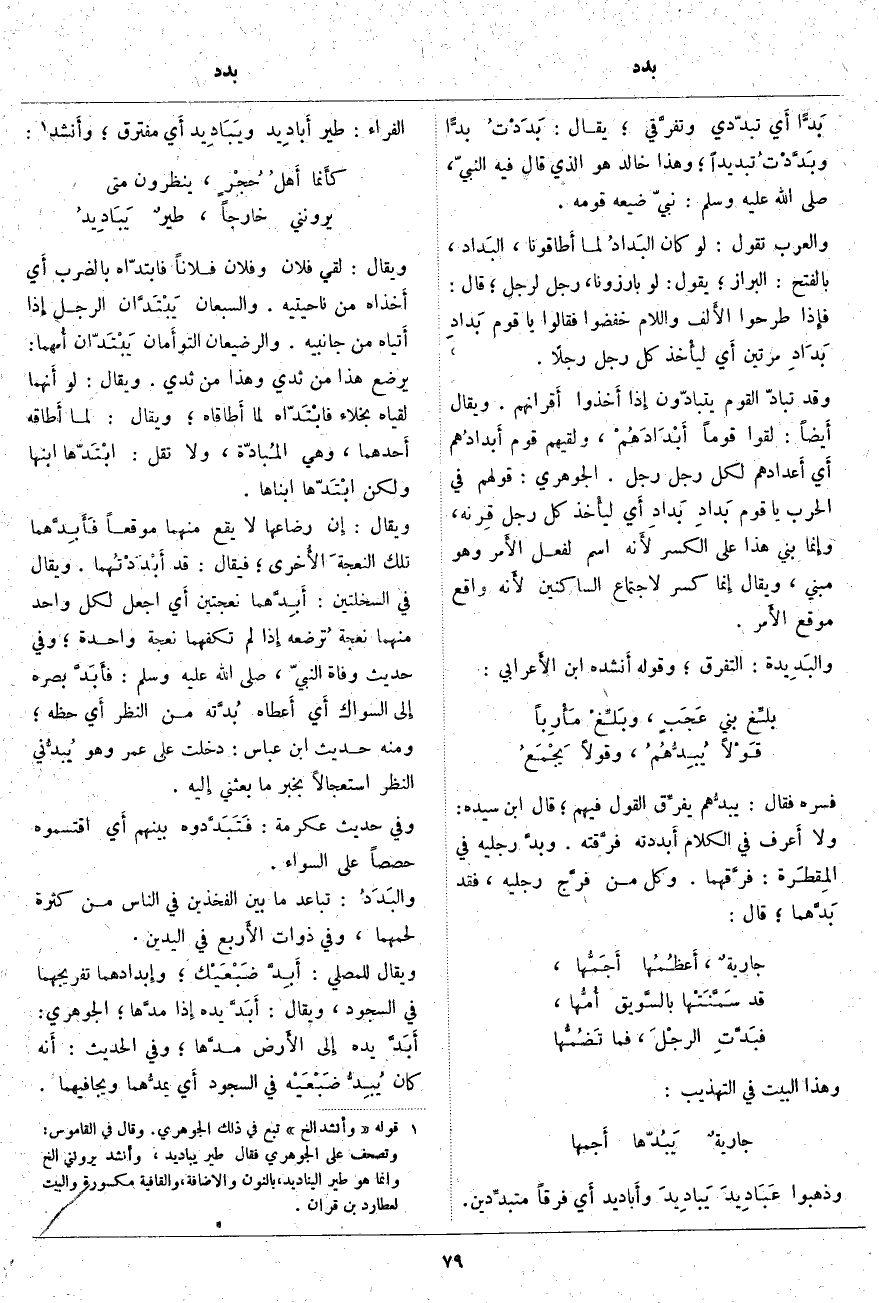 بدد
بدد
بَدًّا أي تبدّدي وتفرَّقي ؛ يقال : بَدَدْتُ بدًّا
وبَدَّدْتُ تبديداً ؛ وهذا خالد هو الذي قال فيه النبيّ،
صلى الله عليه وسلم : نبيّ ضيعه قومه .
والعرب تقول : لو كان البَدادُ لما أطاقونا ، البَداد ،
بالفتح : البراز ؛ يقول: لو بارزونا، رجل لرجل ؛ قال :
فإذا طرحوا الألف واللام خفضوا فقالوا يا قوم بَدادِ
بَدَادِ مرتين أي ليأخذ كل رجل رجلًا .
وقد تبادّ القوم يتبادّون إذا أخذوا أقرانهم . ويقال
أيضاً : لقوا قوماً أَبْدَادَهُمْ ، ولقيهم قوم أبدادُهم
أي أعدادهم لكل رجل رجل . الجوهري : قولهم في
الحرب يا قوم بَدادِ بَدادِ أي ليأخذ كل رجل قِرنه،
وإنما بني هذا على الكسر لأنه اسم لفعل الأمر وهو
مبني ، ويقال إنما كسر لاجتماع الساكنين لأنه واقع
موقع الأمر .
والبَدِيدة : التفرق ؛ وقوله أنشده ابن الأعرابي :
بلِّغ بني عَجَبٍ ، وبَلِّغْ مَأْرِباً
قَوْلاً يُبِدُّهُمُ ، وقولاً يَجْمَعُ
فسره فقال : يبدُّهم يفرّق القول فيهم ؛ قال ابن سيده:
ولا أعرف في الكلام أبددته فرَّقته . وبدَّ رجليه في
المِقطَرة : فرَّقهما . وكل من فرَّج رجليه ، فقد
بَدَّهما ؛ قال :
جاريةٌ ، أعظُمُها أجَمُّها ،
قد سَمَّنَتْها بالسَّويق أُمُّها ،
فبَدَّتِ الرجلَ ، فما تَضُمُّها
وهذا البيت في التهذيب :
جاريةٌ يَبُدّها أجمها
وذهبوا عَبَادِيدَ يَبادِيدَ وأَباديد أي فرقاً متبدّدين.
الفراء : طير أباديد ويَبَادِيد أي مفترق ؛ وأنشد١ :
كأنما أهلُ حُجْرٍ ، ينظرون متى
يرونني خارجاً ، طيرٌ يَبَاديدُ
ويقال : لقي فلان وفلان فلاناً فابتدّاه بالضرب أي
أخذاه من ناحيتيه . والسبعان يَبْتَدَّان الرجل إذا
أتياه من جانبيه . والرضيعان التوأمان يَبْتَدّان أمهما:
يرضع هذا من ثدي وهذا من ثدي . ويقال : لو أنهما
لقياه بخلاء فابْتَدّاه لما أطاقاه ؛ ويقال : لما أطاقه
أحدهما ، وهي المُبادّة ، ولا تقل : ابْتَدّها ابنها
ولكن ابْتَدّها ابناها .
ويقال : إن رضاعها لا يقع منهما موقعاً فأَبِدَّهما
تلك النعجةَ الأُخرى ؛ فيقال : قد أَبْدَدْتُهما . ويقال
في السخلتين : أَبِدَّهما نعجتين أي اجعل لكل واحد
منهما نعجة تُرضعه إذا لم تكفهما نعجة واحدة ؛ وفي
حديث وفاة النبيّ ، صلى الله عليه وسلم : فأَبَدَّ بصره
إلى السواك أي أعطاه بُدَّته من النظر أي حظه ؛
ومنه حديث ابن عباس : دخلت على عمر وهو يُبدُّني
النظر استعجالاً بخبر ما بعثني إليه .
وفي حديث عكرمة : فتَبَدَّدوه بينهم أي اقتسموه
حصصاً على السواء .
والبَدَدُ : تباعد ما بين الفخذين في الناس من كثرة
لحمهما ، وفي ذوات الأربع في اليدين .
ويقال للمصلي : أَبِدَّ ضَبْعَيْك ؛ وإبدادهما تفريجهما
في السجود ، ويقال : أبَدَّ يده إذا مدَّها ؛ الجوهري:
أَبَدَّ يده إلى الأرض مدَّها ؛ وفي الحديث : أنه
كان يُبِدُّ ضَبْعَيْه في السجود أي يمدُّهما ويجافيهما .
١ قوله « وأنشد الخ » تبع في ذلك الجوهري. وقال في القاموس:
وتصحف على الجوهري فقال طير يباديد ، وأنشد يرونني الخ
وانما هو طير اليناديد، بالنون والاضافة، والقافية مكسورة والبيت
لعطارد بن قران .
٧٩